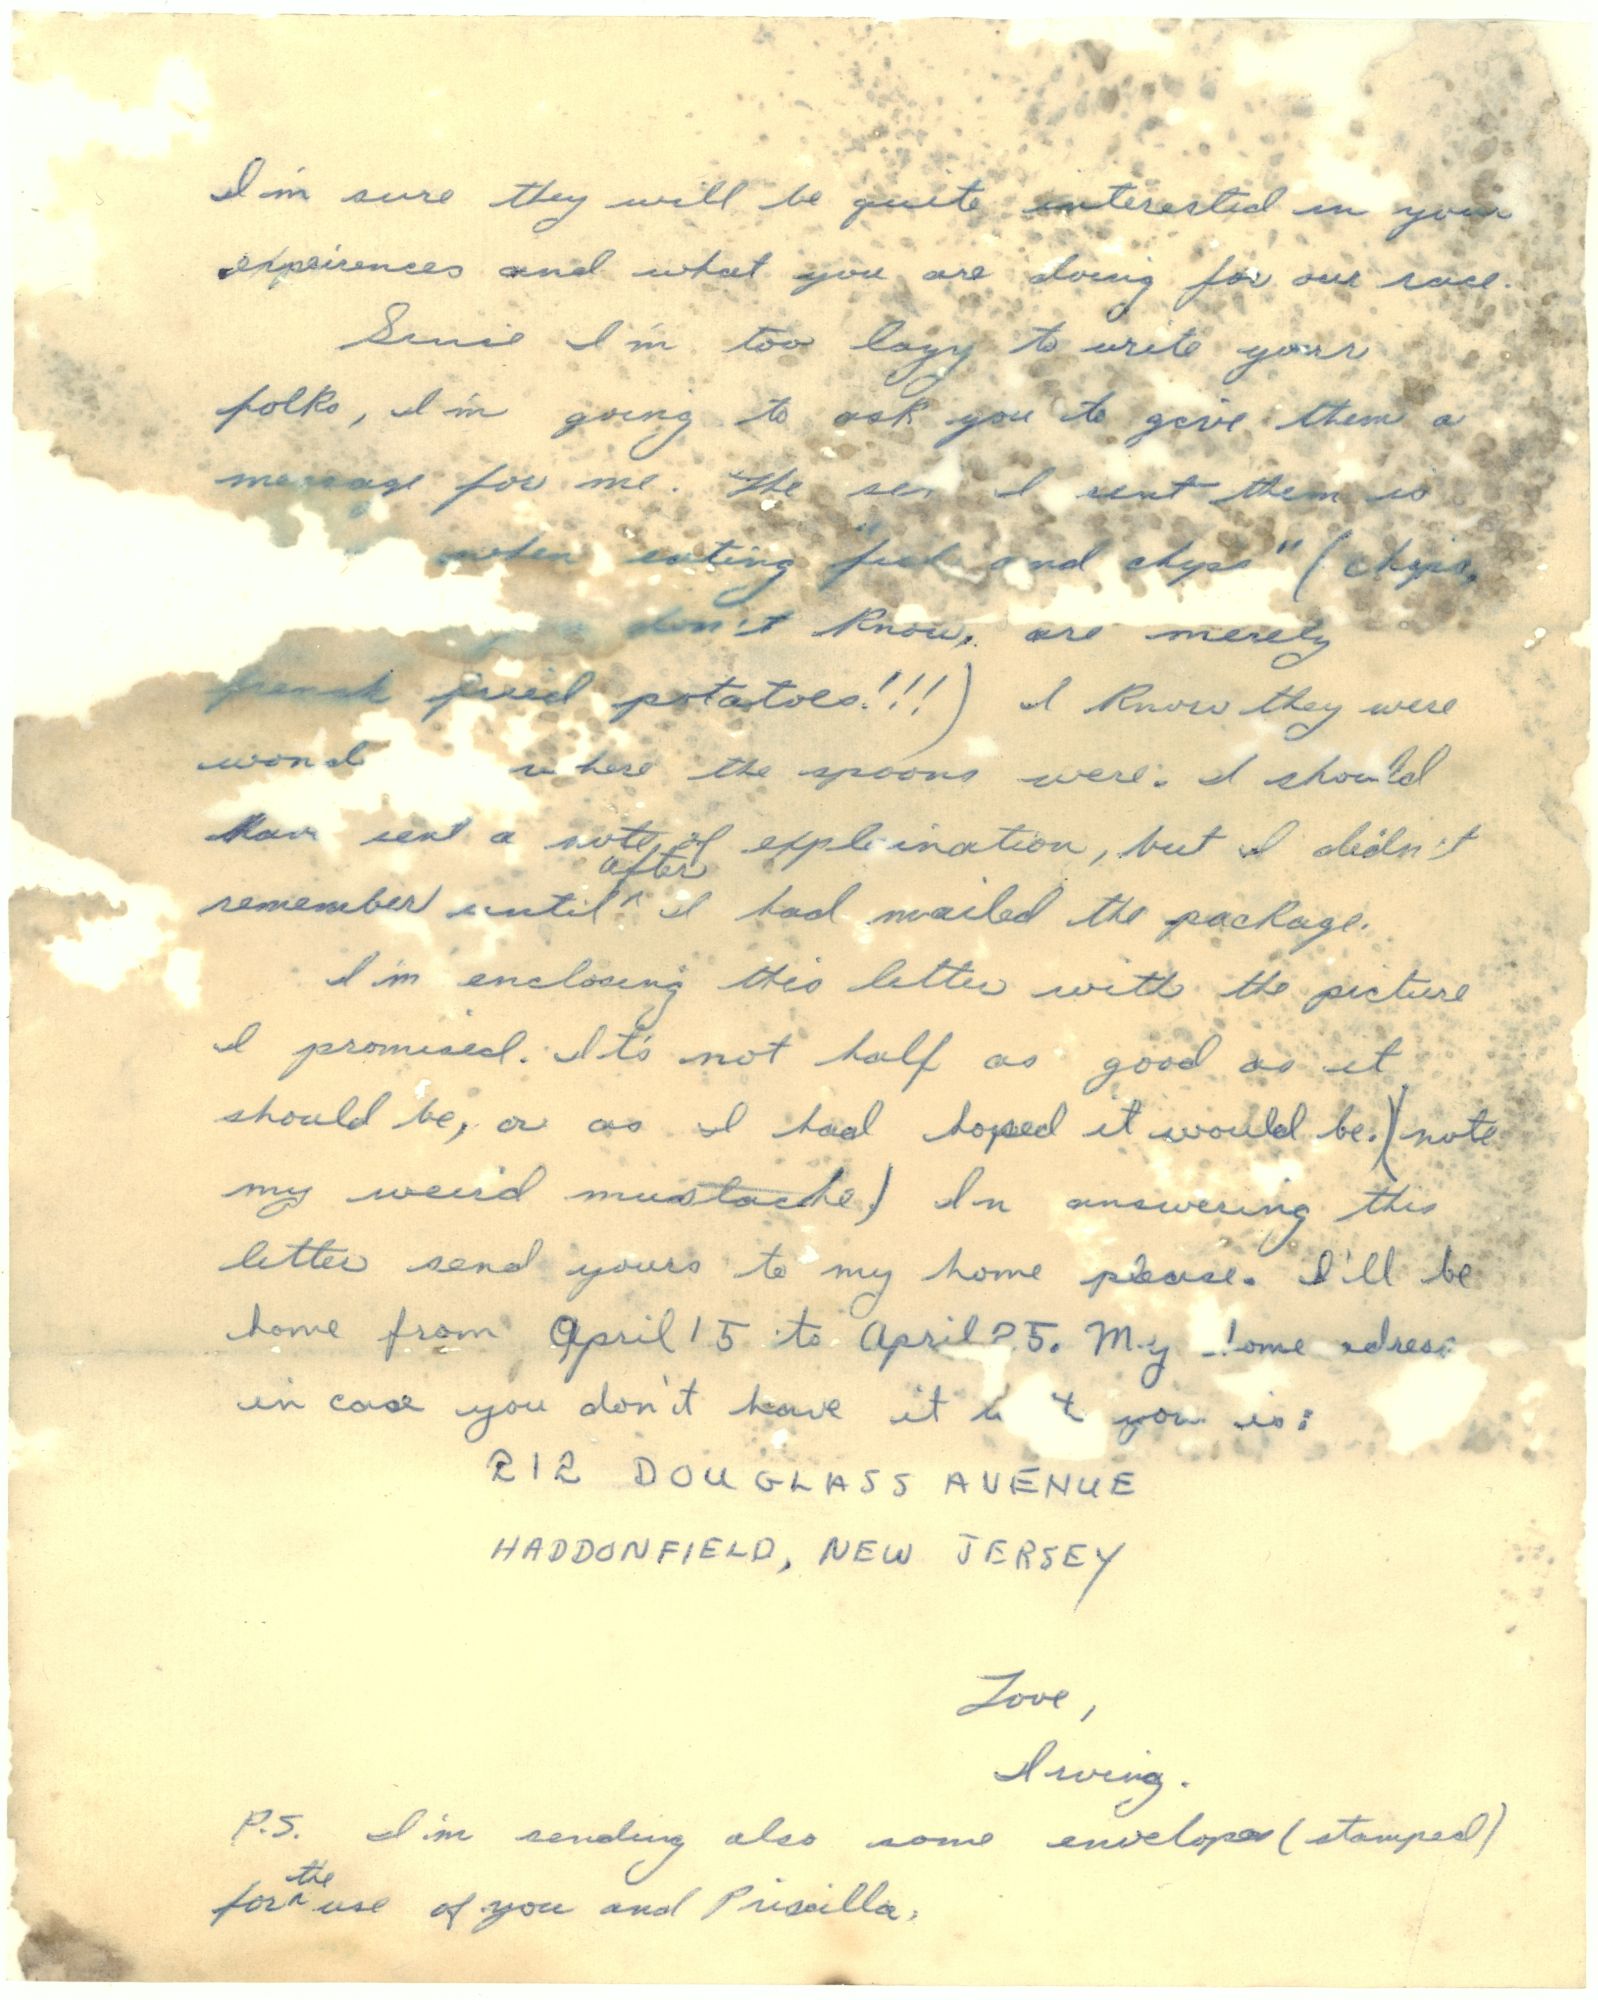 I'm sure they will be quite interested in your
expeirences and what you are doing for our race.
Sinse I'm too lazy to write your
folks, I'm going to ask you to give them a
message for me. The I sent them is
when eating "fish and chips" (chips,
don't know, are merely
french fried potatoes!!!) I know they were
where the spoons were. I should
have sent a note of explaination, but I didn't
remember until ^after I had mailed the package.
I'm enclosing this letter with the picture
I promised. It's not half as good as it
should be, or as I had hoped it would be. (note
my weird mustache) In answering this
letter send yours to my home please. I'll be
home from April 15 to April 25. My home adress
in case you don't have it you is:
212 DOUGLASS AVENUE
HADDONFIELD, NEW JERSEY
Love,
Irving.
P.S. I'm sending also some envelopes (stamped)
for ^the use of you and Priscilla.